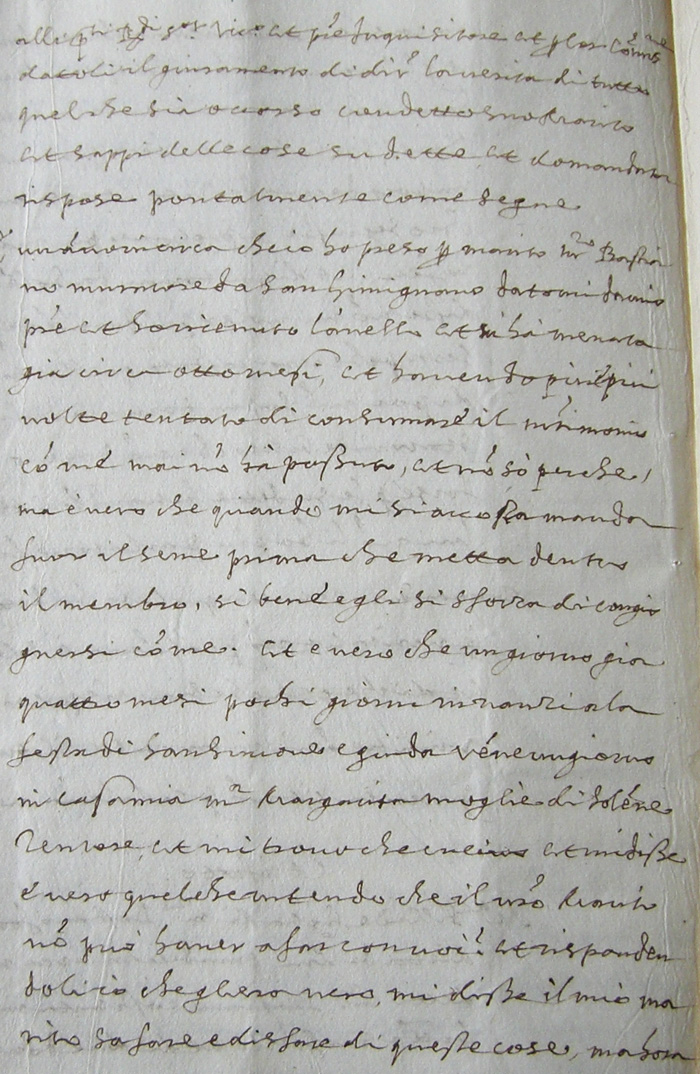 alle p.ti di s.or Vic.o et p're Inquisitore et
datoli il giuramento di dir' la verita di tutto
quel che sia occorso con detto suo marito
et sappi delle cose sudette et domandata
rispose pontalmente come segue
un'anno in circa che io ho preso p marito m.ro Bastia
no muratore da San Gimignano datomi da mio
p're et ho ricevuto l'anello et mi hà menata
già circa otto mesi, et havendo più e più
volte tentato di consumare il m'rimonio
có me mai nó hà possuto, et nó sò perche,
ma é vero che quando mi si accosta manda
fuor il seme prima che metta dentro
il membro, si bene egli si sforza di congio
gnersi có me. et e vero che un giorno gia
quattro mesi pochi giorni innanzi a la
festa di San Simone e giuda véne un giorno
in casa mia m.a Margarita moglie di
et mi trovò che et mi disse
é vero quel che intendo che il vró marito
nó può haver a far con voi? et responden
doli io che gliera vero, mi disse il mio ma
rito sa fare e disfare di queste cose, ma hora